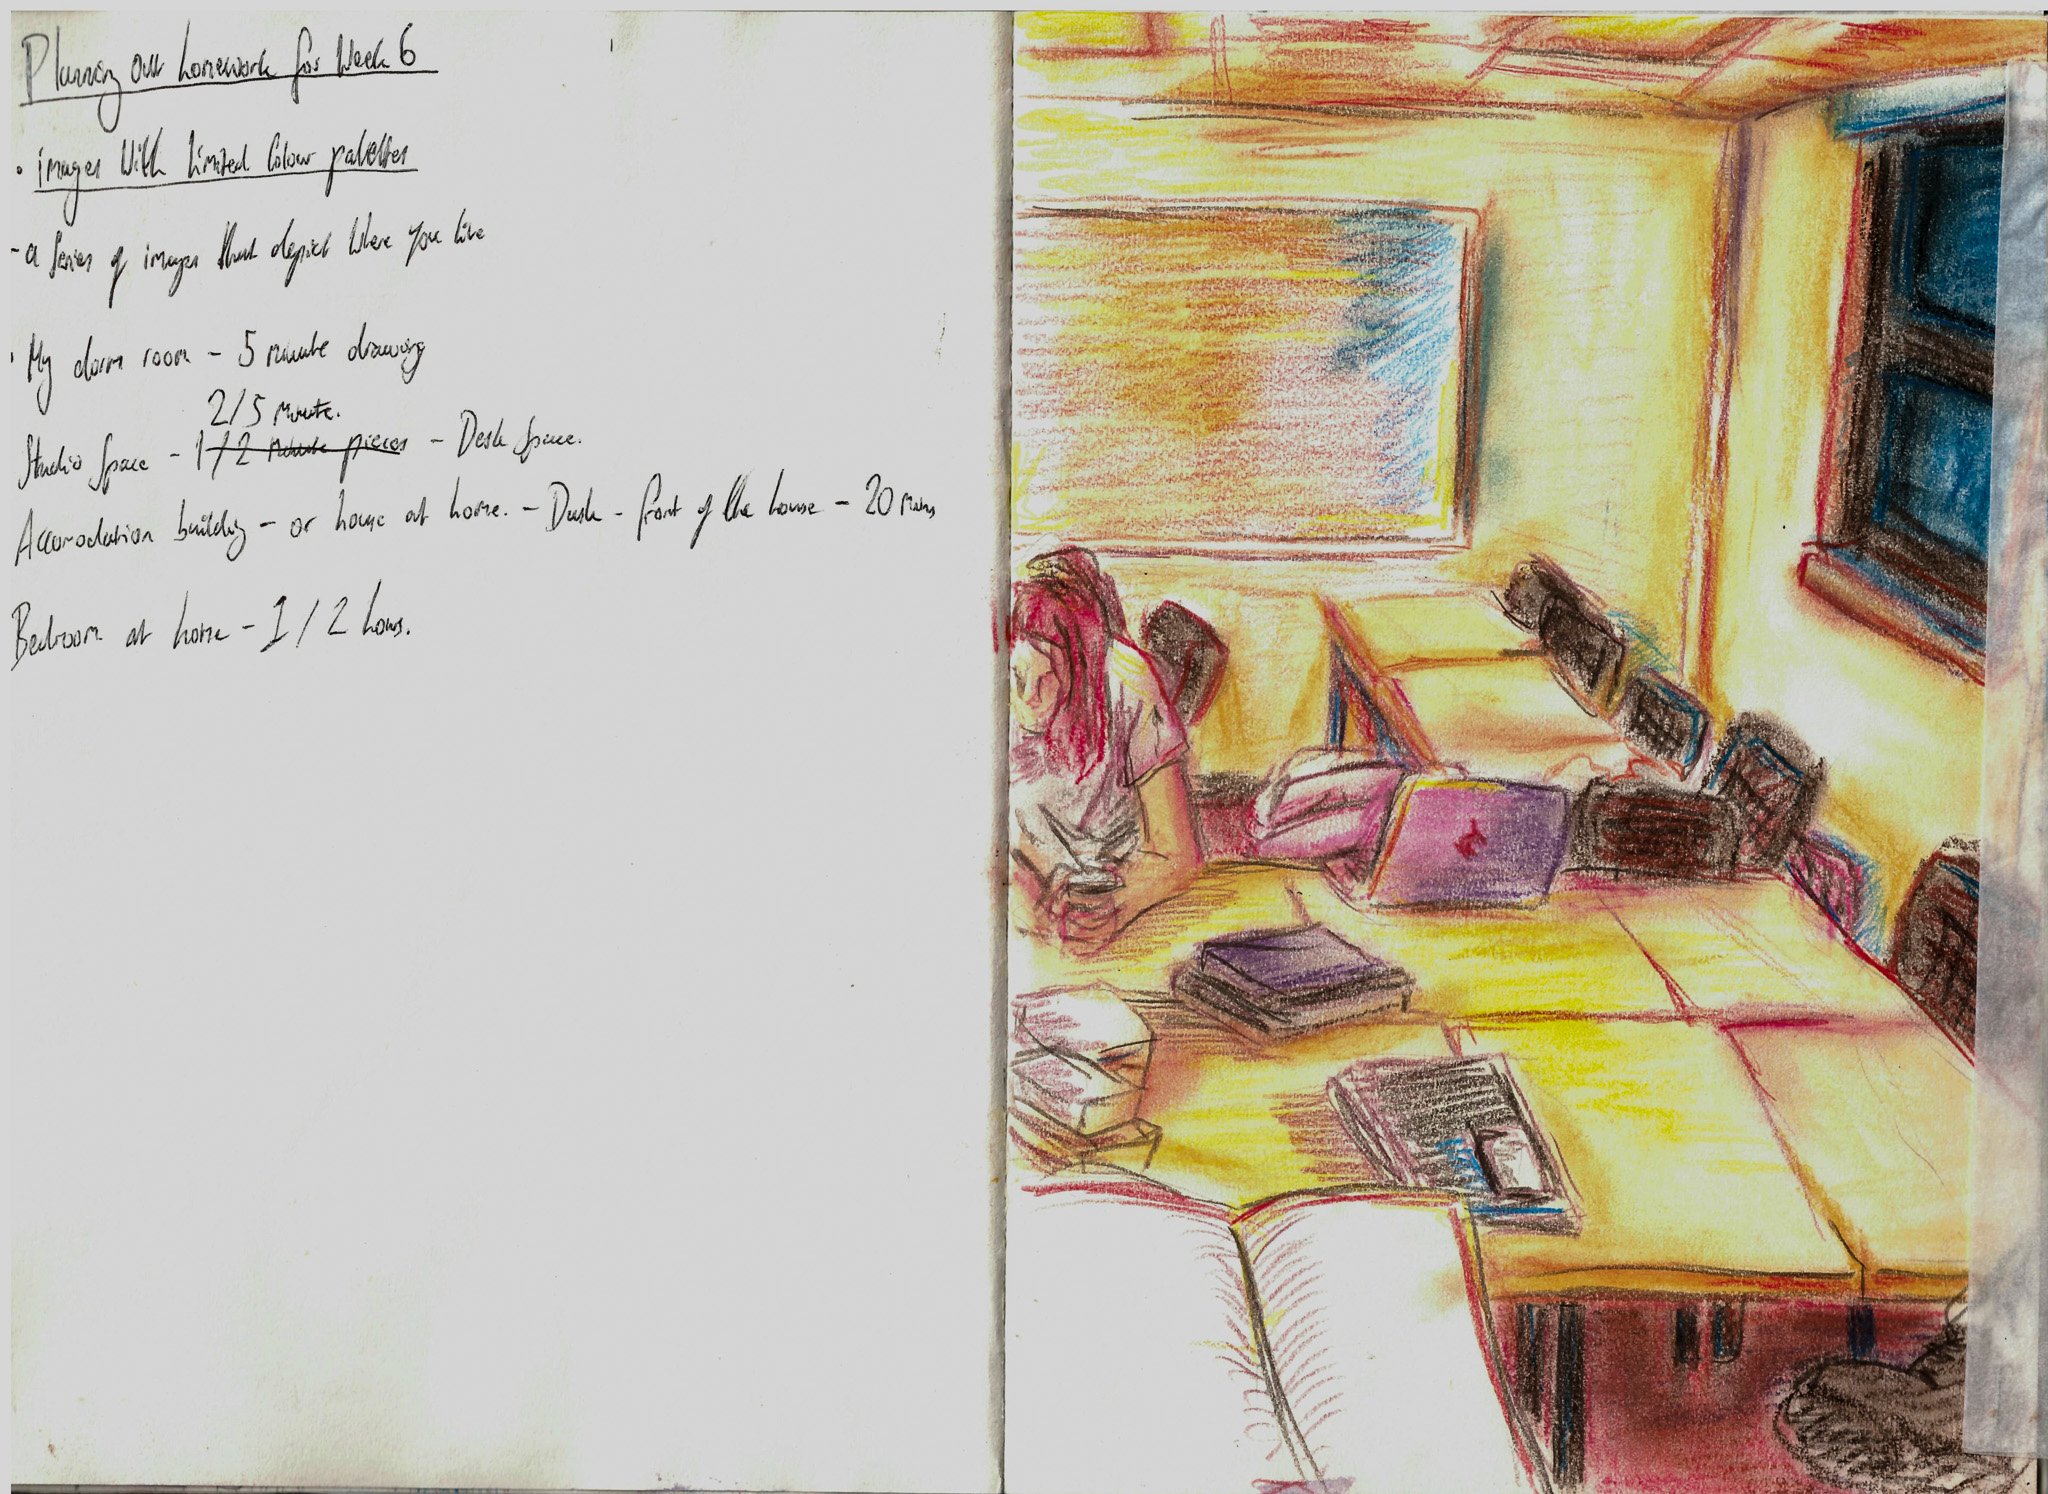 Planning out homework for Week 6
• images with limited Colour palettes
- a Series of images that depict Where you live
• My dorm room - 5 minute drawing
2/5 minute.
Studio Space - 1/2 minute pieces - Desk Space.
Accomodation building - or house at home. - Dusk - front of the house - 20 mins
Bedroom at home - 1/2 hours.